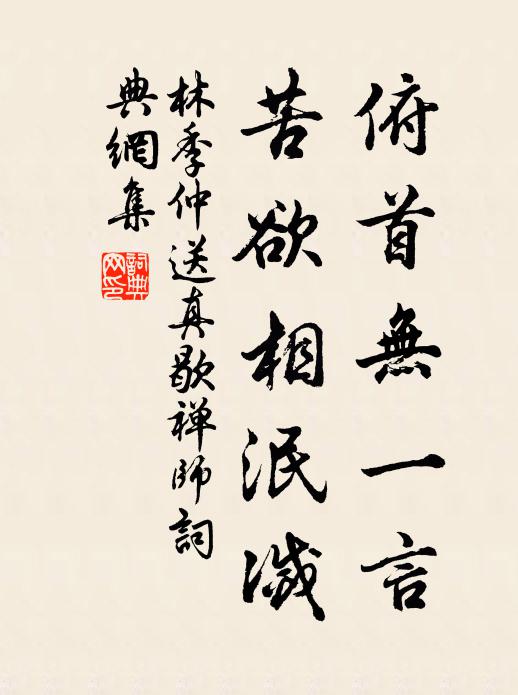 俯首無一言
苦欲相泯滅
林季仲送真歇禅師詞
典網集
詞典網印